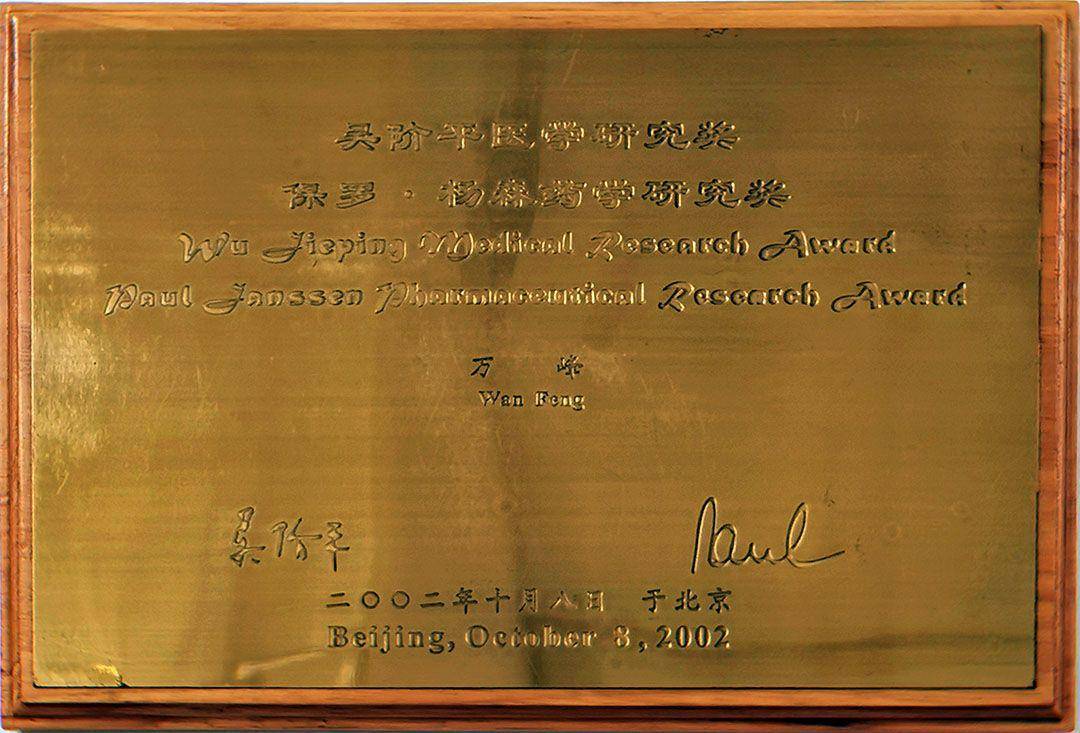 吴阶平医学研究奖
保罗·杨森药学研究奖
Wu Jieping Medical Research Award
Paul Janssen Pharmaceutical Research Award
万 峰
Wan Feng
吴阶平 Paul
二〇〇二年十月八日 于北京
Beijing, October 8, 2002